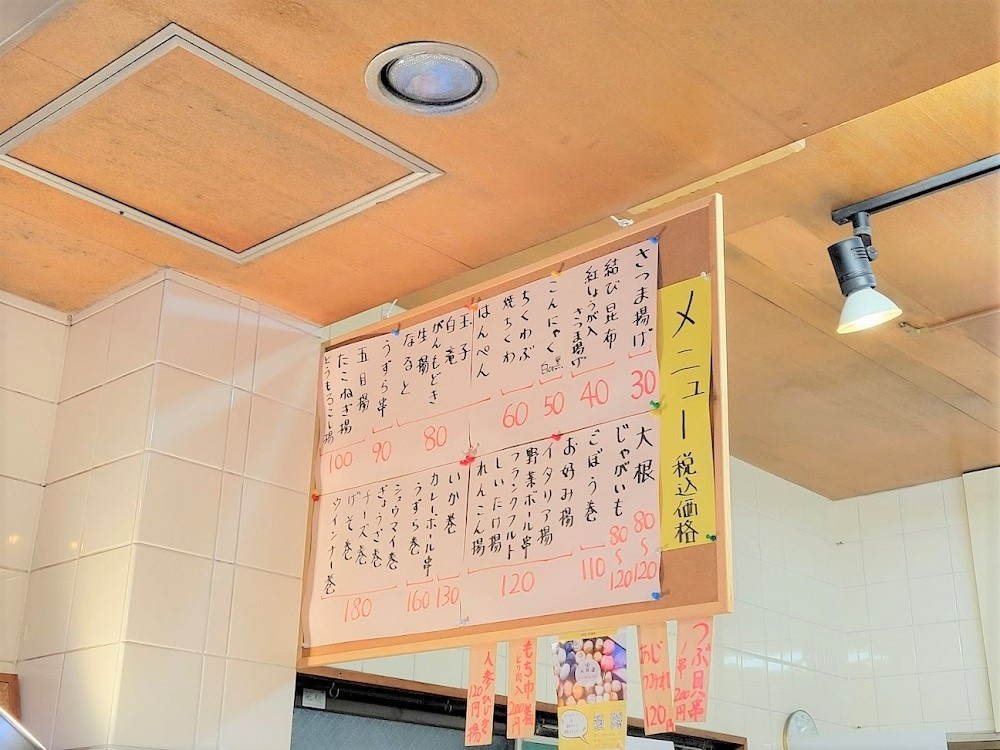 メニュー 税込価格
さつま揚げ
30
結び昆布
紅しょうが入さつま揚げ
40
こんにゃく 白・黒
50
ちくわぶ
焼ちくわ
60
はんぺん
玉子
白竜
がんもどき
生揚
なると
80
うずら串
90
五目揚
たこねぎ揚
とうもろこし揚
100
大根
80〜120
じゃがいも
80〜120
ごぼう巻
110
お好み揚
イタリア揚
野菜ボール串
フランクフルト
しいたけ揚
れんこん揚
120
いか巻
130
カレーボール串
うずら巻
160
シュウマイ巻
ぎょうざ巻
チーズ巻
げそ巻
ウインナー巻
180
つぶ貝串
1串200円
120円
もち巾着
200円
120円